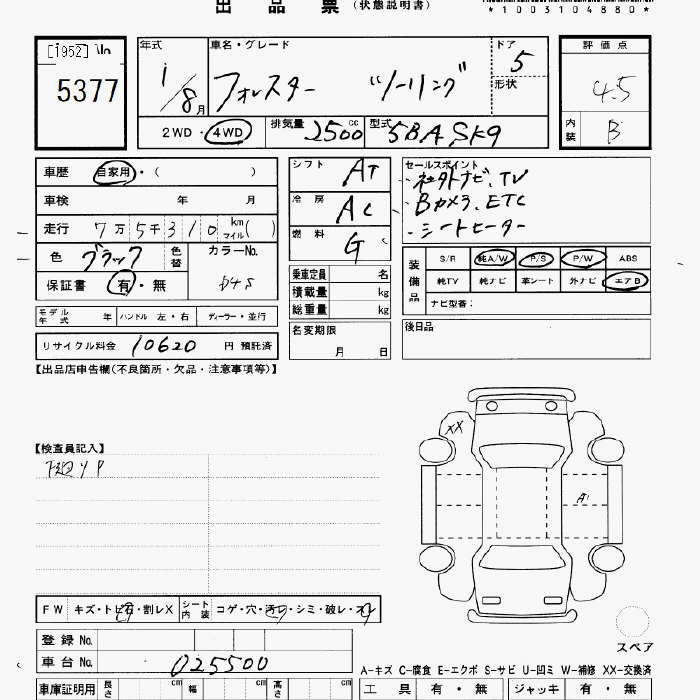 出品票(状態説明書)
*1003104880*
[1952]
5377
年式 1/8月
車名・グレード フォレスター ツーリング
ドア 5
形状
評価点 4.5
内装 B
2WD・4WD
排気量 2500cc
型式 5BA SK9
車歴 自家用・( )
車検 年 月
走行 7万5千310 km マイル( )
色 ブラック 色替
カラーNo. D4S
保証書 有・無
シフト AT
冷房 AC
燃料 G
乗車定員 名
積載量 kg
総重量 kg
名変期限
月 日
セールスポイント
・社外ナビ、TV
・Bカメラ、ETC
・シートヒーター
装備品
S/R 純A/W P/S P/W ABS
純TV 純ナビ 革シート 外ナビ エアB
ナビ型番:
後日品
モデル年式 年 ハンドル 左・右 ディーラー・並行
リサイクル料金 10620 円 預託済
【出品店申告欄(不良箇所・欠品・注意事項等)】
【検査員記入】
XX
A1
FW キズ・トビ石・割レX
シート内装 コゲ・穴・汚レ・シミ・破レ・スレ
スペア
登録No.
車台No. 025500
A-キズ C-腐食 E-エクボ S-サビ U-凹ミ W-補修 XX-交換済
車庫証明用 長さ cm 幅 cm 高さ cm
工具 有・無 ジャッキ 有・無